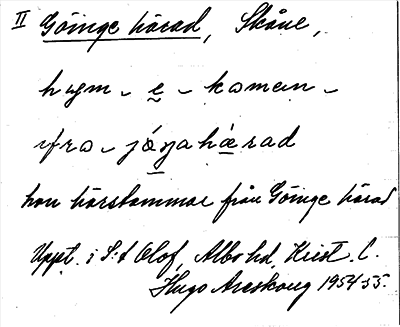 II Göinge härad, Skåne,
hɥm - e̲ - komen -
ifrɔ - jǿŋahæ̲rad
hon härstammar från Göinge härad
Uppt. i S:t Olof, Albo hd, Krist. l.
Hugo Areskoug 1954-55.